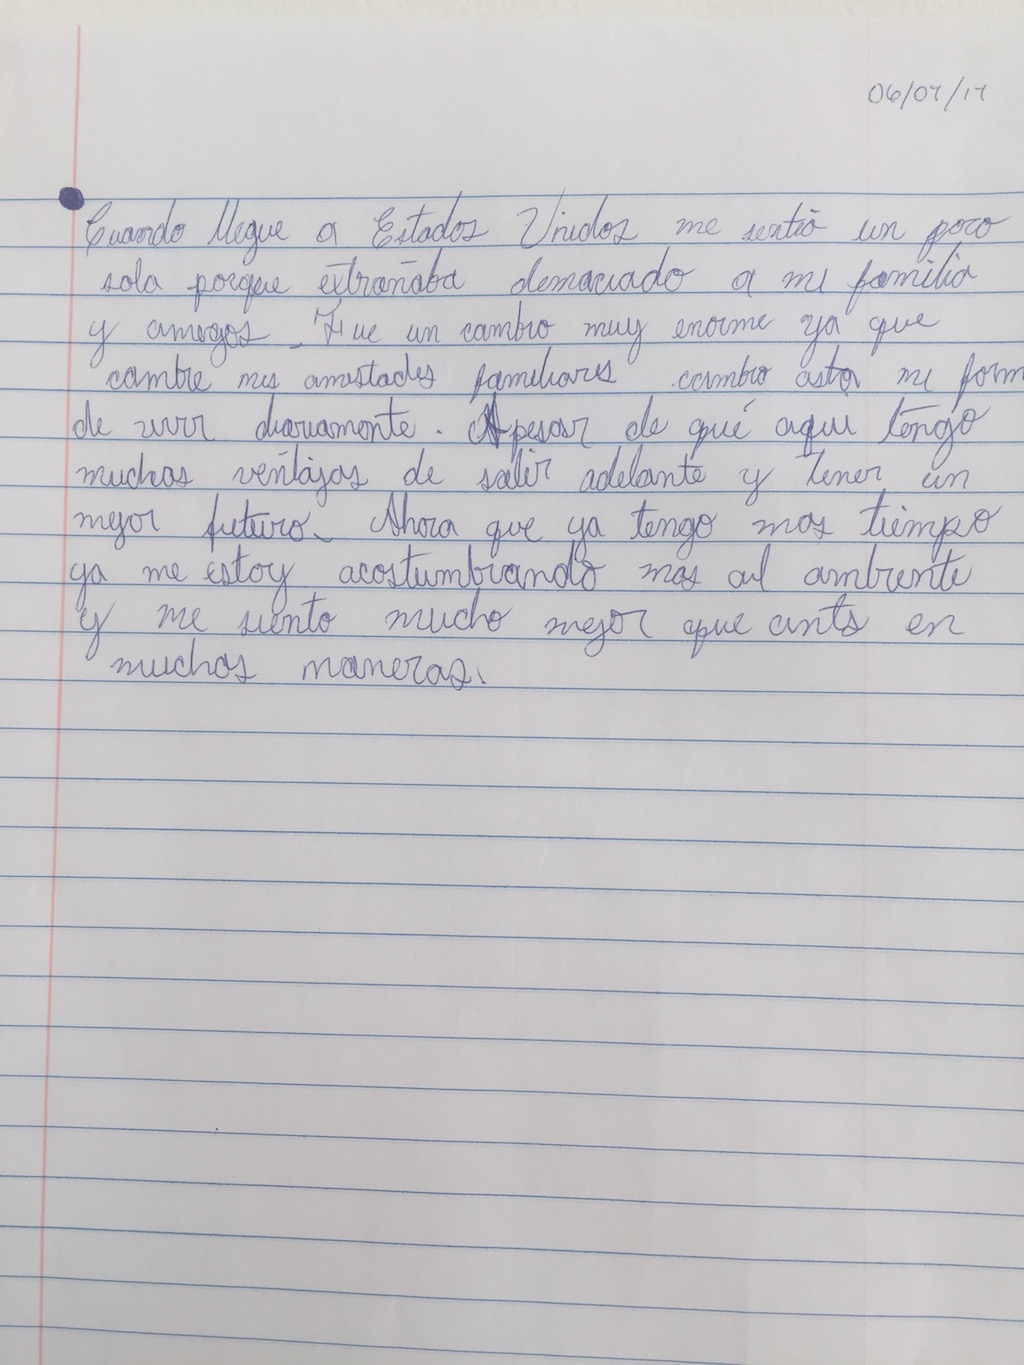 06/07/17
Cuando llegue a Estados Unidos me sentia un poco
sola porque extrañaba demaciado a mi familia
y amigos. Fue un cambio muy enorme ya que
cambie mis amistades familiares cambio asta mi form
de vivir diariamente. Apesar de qué aqui tengo
muchas ventajas de salir adelante y tener un
mejor futuro. Ahora que ya tengo mas tiempo
ya me estoy acostumbrando mas al ambiente
y me siento mucho mejor que ants en
muchas maneras.